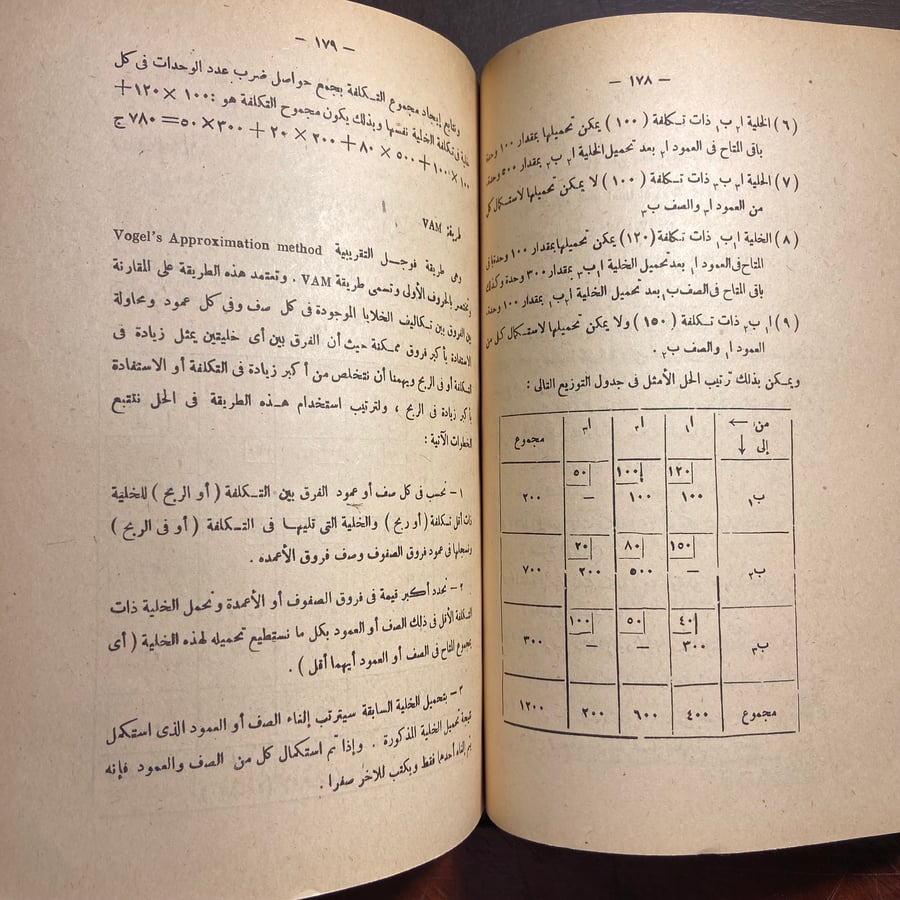 — ١٧٨ —
(٦) الخلية ا٢ ب١ ذات تكلفة (١٠٠) يمكن تحميلها بمقدار ١٠٠ وحدة
باقى المتاح فى العمود ا٢ بعد تحميل الخلية ا٢ ب٢ بمقدار ٥٠٠ وحدة
(٧) الخلية ا٣ ب٣ ذات تكلفة (١٠٠) لا يمكن تحميلها لاستكمال كل
من العمود ا٣ والصف ب٣
(٨) الخلية ا١ ب١ ذات تكلفة (١٢٠) يمكن تحميلها بمقدار ١٠٠ وحدة باقى
المتاح فى العمود ا١ بعد تحميل الخلية ا١ ب٣ بمقدار ٣٠٠ وحدة وكذلك
باقى المتاح فى الصف ب١ بعد تحميل الخلية ا٢ ب١ بمقدار ١٠٠ وحدة
(٩) ا١ ب٢ ذات تكلفة (١٥٠) ولا يمكن تحميلها لاستكمال كل من
العمود ا١ والصف ب٢ .
ويمكن بذلك ترتيب الحل الأمثل فى جدول التوزيع التالى :
من ← ا١ ا٢ ا٣ مجموع
إلى ↓
١٢٠ ١٠٠ ٥٠
ب١ ١٠٠ ١٠٠ — ٢٠٠
١٥٠ ٨٠ ٢٠
ب٢ — ٥٠٠ ٢٠٠ ٧٠٠
٤٠ ٥٠ ١٠٠
ب٣ ٣٠٠ — — ٣٠٠
مجموع ٤٠٠ ٦٠٠ ٢٠٠ ١٢٠٠
— ١٧٩ —
إيجاد مجموع التكلفة بجمع حواصل ضرب عدد الوحدات فى كل
خلية فى تكلفة الخلية نفسها وبذلك يكون مجموع التكلفة هو : ١٠٠ × ١٢٠ +
١٠٠ × ١٠٠ + ٥٠٠ × ٨٠ + ٢٠٠ × ٢٠ + ٣٠٠ × ٥٠ = ٧٨٠ ج
طريقة VAM
وهى طريقة فوجل التقريبية Vogel's Approximation method
وتختصر بالحروف الأولى وتسمى طريقة VAM . وتعتمد هذه الطريقة على المقارنة
بين الفروق بين تكاليف الخلايا الموجودة فى كل صف وفى كل عمود ومحاولة
الاستفادة بأكبر فروق ممكنة حيث أن الفرق بين أى خليتين يمثل زيادة فى
التكلفة أو فى الربح ويهمنا أن نتخلص من أكبر زيادة فى التكلفة أو الاستفادة
بأكبر زيادة فى الربح ، ولترتيب استخدام هذه الطريقة فى الحل نتتبع
الخطوات الآتية :
١ — نحسب فى كل صف أو عمود الفرق بين التكلفة ( أو الربح ) للخلية
ذات أقل تكلفة ( أو ربح ) والخلية التى تليها فى التكلفة ( أو فى الربح )
ونسجلها فى عمود فروق الصفوف وصف فروق الأعمده .
٢ — نحدد أكبر قيمة فى فروق الصفوف أو الأعمدة ونحمل الخلية ذات
التكلفة الأقل فى ذلك الصف أو العمود بكل ما نستطيع تحميله لهذه الخلية ( أى
مجموع المتاح فى الصف أو العمود أيهما أقل ) .
٣ — بتحميل الخلية السابقة سيترتب إلغاء الصف أو العمود الذى استكمل
نتيجة تحميل الخلية المذكورة . وإذا تم استكمال كل من الصف والعمود فإنه
يتم إلغاء أحدهما فقط ويكتب للآخر صفرا .